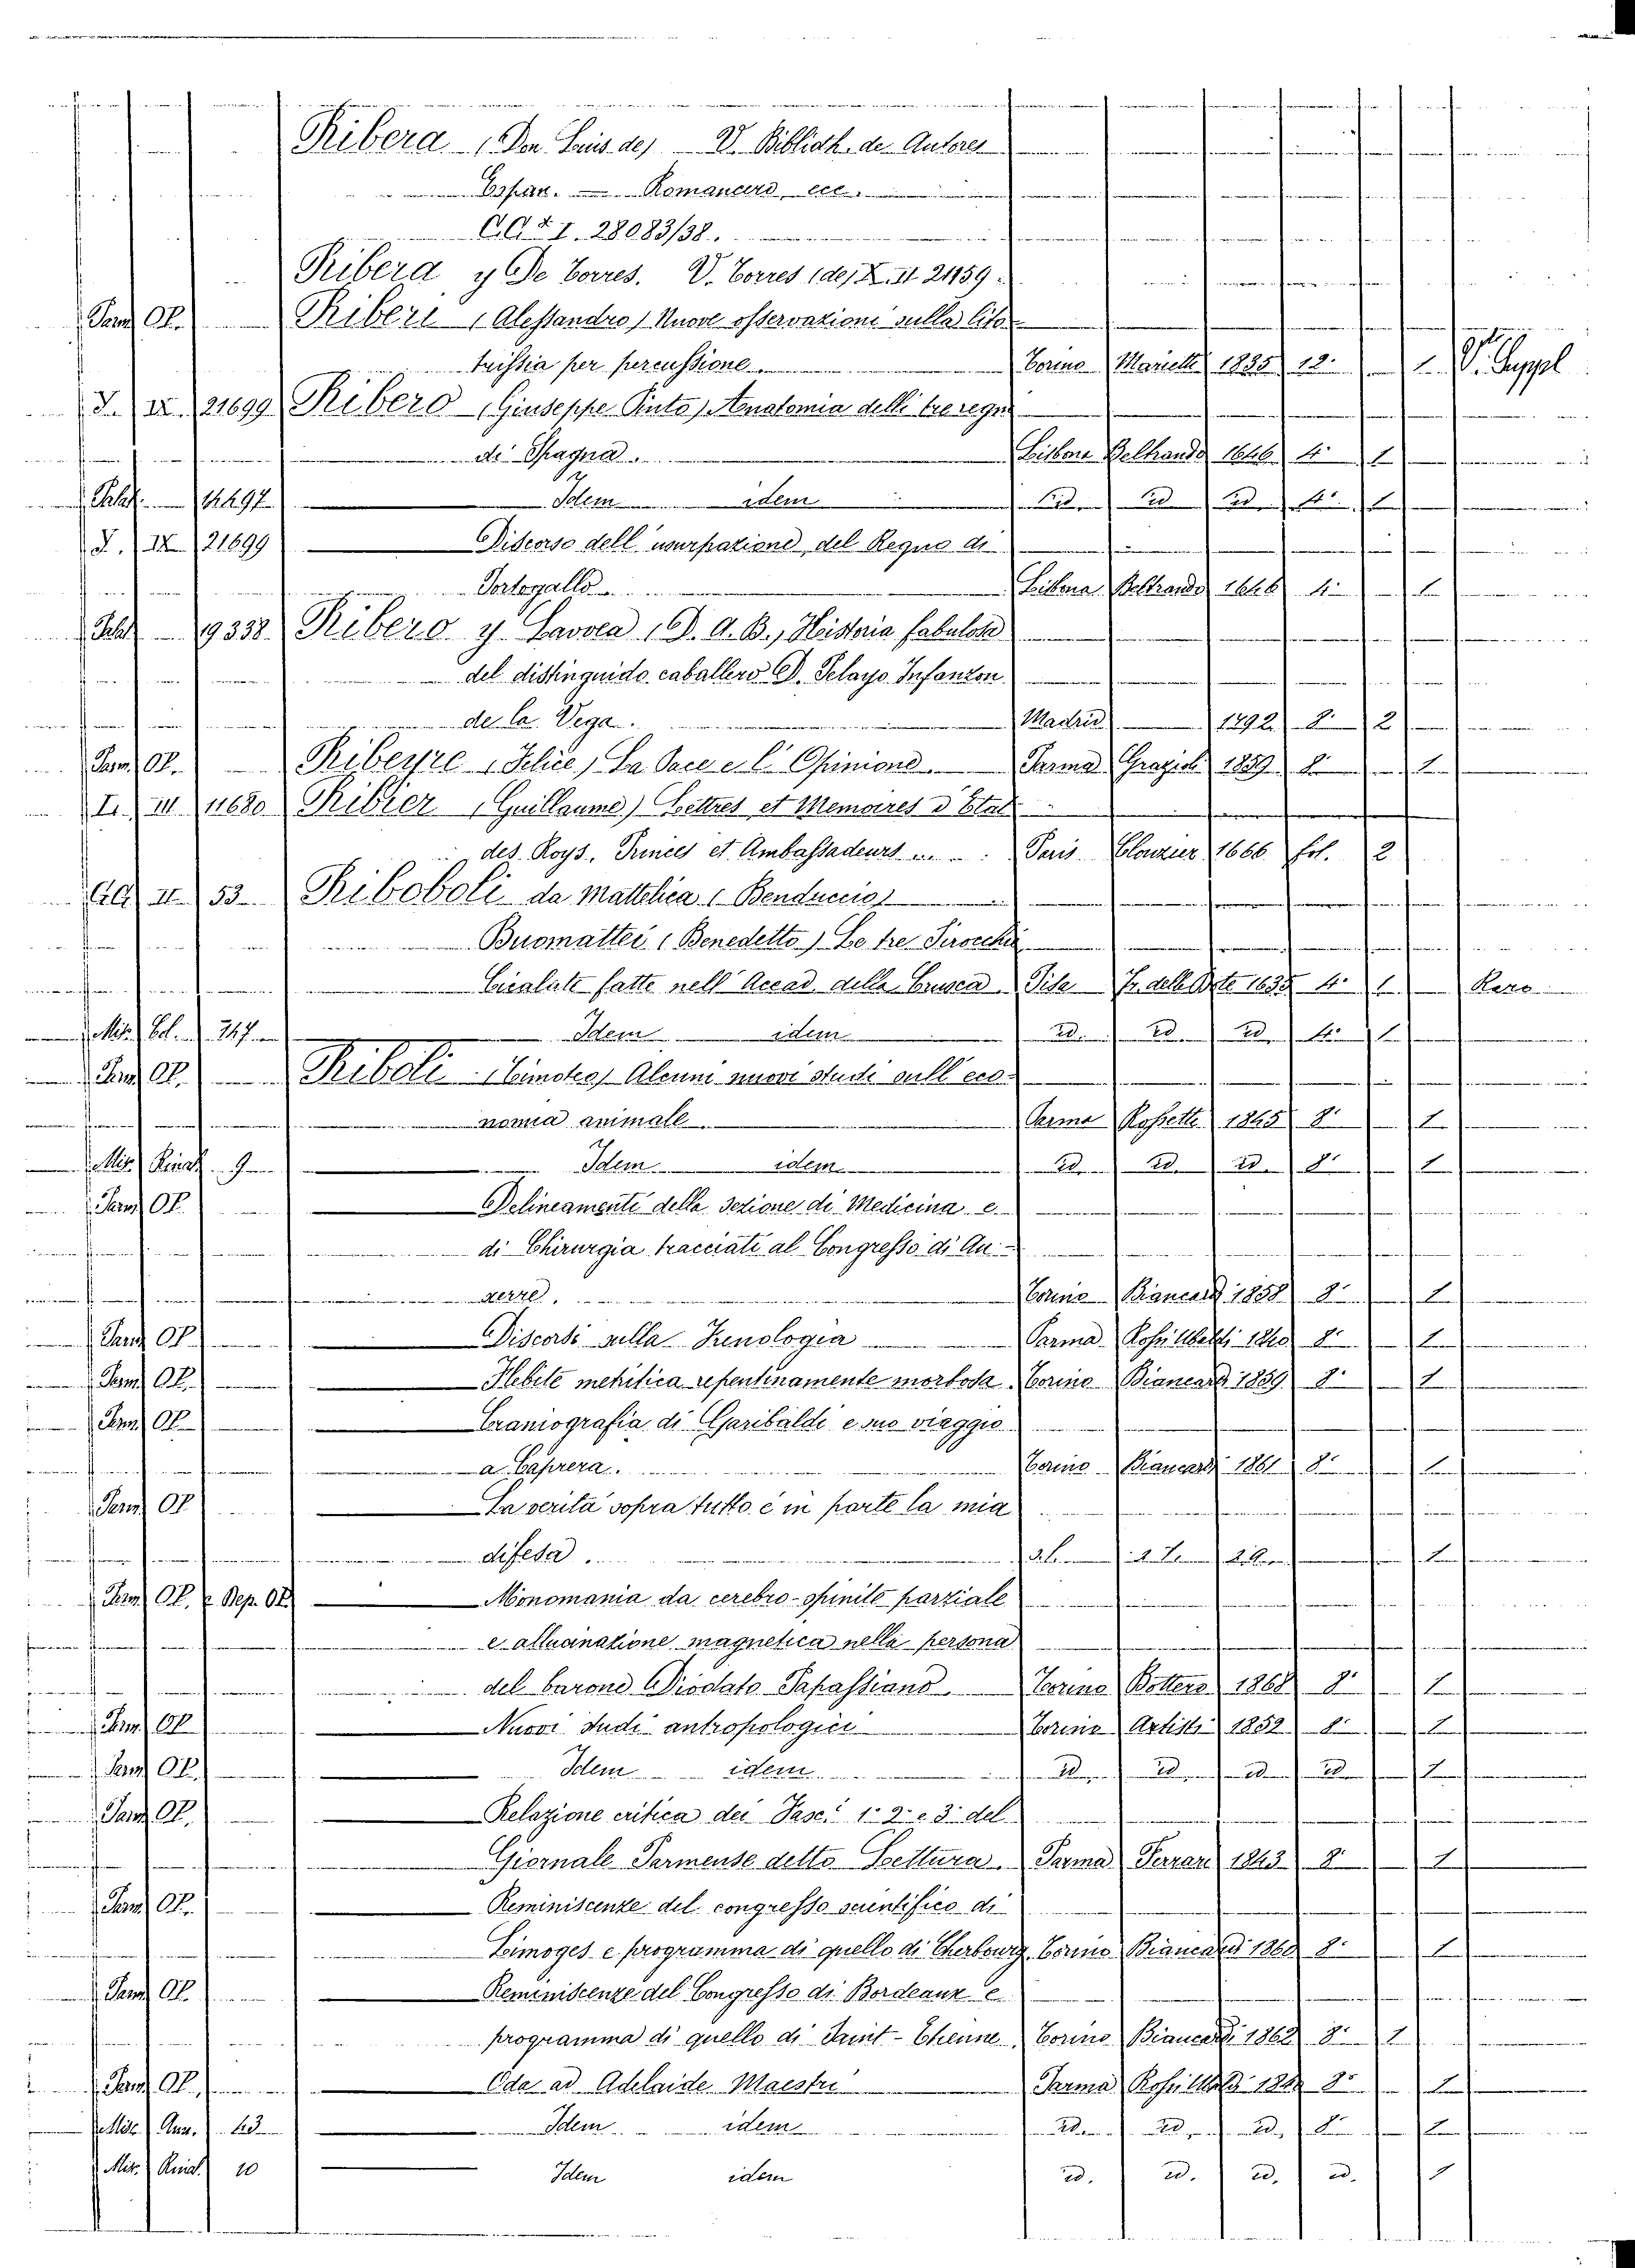 Ribera (Don Luis de) V. Biblioth. de Autores
Españ. Romancero, ecc.
28083/38.
Ribera y De Torres. V. Torres (de) X. II 21459.
Parm. Op. Riberi (Alessandro) Nuove osservazioni sulla lito-
trissia per percussione. Torino 1835 12. 1 V. Suppl
IX. 21699 Ribero (Giuseppe Pinto) Anatomia delli tre regni
di Spagna. Lisbona Beltrando 1646 4° 1
Palat. 14497 Idem idem id. id id 4° 1
IX 21699 Discorso dell' usurpazione del Regno di
Portogallo. Lisbona Beltrando 1646 4° 1
Palat 19338 Ribero y Larrea (D. A. B.) Historia fabulosa
del distinguido caballero D. Pelayo Infanzon
de la Vega. Madrid 1792 8° 2
Parm. Op. Ribeyre (Felice) La Pace e l'Opinione. Parma Grazioli 1859 8° 1
III 11680 Ribier (Guillaume) Lettres et Memoires d'Etat
des Roys, Princes et Ambassadeurs ... Paris Clouzier 1666 fol. 2
II. 53 Riboboli da Mattelica (Benduccio)
Buomattei (Benedetto) Le tre Sirocchie
Cicalate fatte nell' Accad. della Crusca. Pisa Fr. delle Dote 1635 4° 1 Raro
Misc. Col. 747 Idem idem id. id id 4° 1
Parm Op. Riboli (Timoteo) Alcuni nuovi studi sull' eco-
nomia animale Parma Rossetti 1845 8° 1
Misc. 9 Idem idem id. id. id. 8° 1
Parm Op. Delineamenti della Sezione di Medicina e
di Chirurgia tracciati al Congresso di Au-
xerre. Torino Biancardi 1858 8° 1
Parm Op. Discorsi sulla Frenologia Parma Rossi Ubaldi 1840 8° 1
Parm Op. Flebite mefitica repentinamente mortosa. Torino Biancardi 1859 8° 1
Parm Op. Craniografia di Garibaldi e suo viaggio
a Caprera. Torino Biancardi 1861 8° 1
Parm Op La verità sopra tutto è in parte la mia
difesa. 1
Parm Op. e Dep. Op. Monomania da cerebro-spinite parziale
e allucinazione magnetica nella persona
del barone Diodato Papassiano. Torino Bottero 1868 8° 1
Parm Op. Nuovi studi antropologici Torino Artisti 1852 8° 1
Parm Op. Idem idem. id id id id 1
Parm Op. Relazione critica dei Fasc. 1° 2° e 3° del
Giornale Parmense detto Lettura. Parma Ferrari 1843 8° 1
Parm Op. Reminiscenze del congresso scientifico di
Limoges e programma di quello di Cherbourg. Torino Biancardi 1860 8° 1
Parm Op. Reminiscenze del Congresso di Bordeaux e
programma di quello di Saint-Etienne. Torino Biancardi 1862 8° 1
Parm Op. Oda ad Adelaide Maestri Parma Rossi Ubaldi 8° 1
Misc. Idem idem id. id. id. 8° 1
Misc. 10 Idem idem id. id. id. id. 1